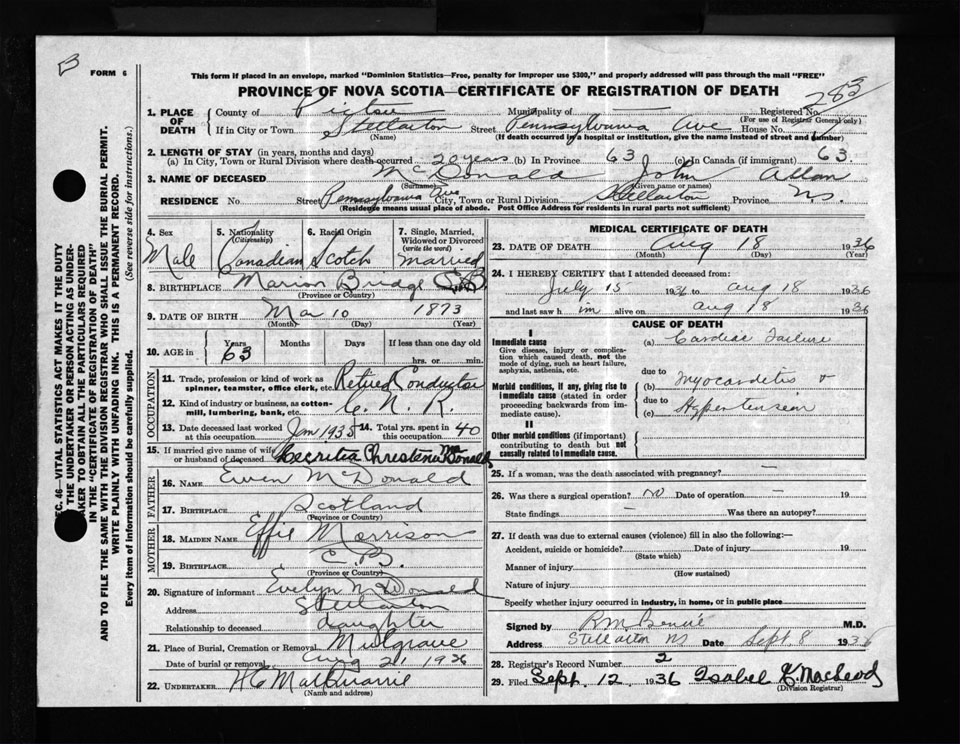 B
FORM 6
This form if placed in an envelope, marked "Dominion Statistics—Free, penalty for improper use $300," and properly addressed will pass through the mail "FREE"
PROVINCE OF NOVA SCOTIA—CERTIFICATE OF REGISTRATION OF DEATH
285
1. PLACE OF DEATH County of Pictou Municipality of — Registered No.
(For use of Registrar General only)
If in City or Town Stellarton Street Pennsylvania Ave House No.
(Name) (If death occurred in a hospital or institution, give the name instead of street and number)
2. LENGTH OF STAY (in years, months and days)
(a) In City, Town or Rural Division where death occurred 20 years (b) In Province 63 (c) In Canada (if immigrant) 63
3. NAME OF DECEASED McDonald John Allan
(Surname) (Given name or names)
RESIDENCE No Street Pennsylvania Ave City, Town or Rural Division Stellarton Province N.S.
(Residence means usual place of abode. Post Office Address for residents in rural parts not sufficient)
4. Sex 5. Nationality (Citizenship) 6. Racial Origin 7. Single, Married, Widowed or Divorced (write the word)
Male Canadian Scotch married
8. BIRTHPLACE Marion Bridge C.B.
(Province or Country)
9. DATE OF BIRTH Mar 10 1873
(Month) (Day) (Year)
10. AGE in Years Months Days If less than one day old
63 hrs. or min.
OCCUPATION
11. Trade, profession or kind of work as spinner, teamster, office clerk, etc. Retired Conductor
12. Kind of industry or business, as cotton-mill, lumbering, bank, etc. C. N. R.
13. Date deceased last worked at this occupation Jan 1935 14. Total yrs. spent in this occupation 40
15. If married give name of wife or husband of deceased Christena McDonald
FATHER
16. NAME Ewen McDonald
17. BIRTHPLACE Scotland
(Province or Country)
MOTHER
18. MAIDEN NAME Effie Morrison
19. BIRTHPLACE C. B.
(Province or Country)
20. Signature of informant Evelyn McDonald
Address Stellarton
Relationship to deceased daughter
21. Place of Burial, Cremation or Removal Mulgrave
Date of burial or removal Aug 21, 1936
22. UNDERTAKER H C MacQuarrie
(Name and address)
MEDICAL CERTIFICATE OF DEATH
23. DATE OF DEATH Aug 18 1936
(Month) (Day) (Year)
24. I HEREBY CERTIFY that I attended deceased from:
July 15 1936 to Aug 18 1936
and last saw h im alive on Aug 18 1936
CAUSE OF DEATH
I
Immediate cause
Give disease, injury or complication which caused death, not the mode of dying, such as heart failure, asphyxia, asthenia, etc.
(a) Cardiac Failure
due to
Morbid conditions, if any, giving rise to immediate cause (stated in order proceeding backwards from immediate cause).
(b) Myocarditis &
due to
(c) Hypertension
II
Other morbid conditions (if important) contributing to death but not causally related to immediate cause.
25. If a woman, was the death associated with pregnancy? —
26. Was there a surgical operation? No Date of operation — 19
State findings — Was there an autopsy?
27. If death was due to external causes (violence) fill in also the following:—
Accident, suicide or homicide? Date of injury 19
(State which)
Manner of injury
(How sustained)
Nature of injury
Specify whether injury occurred in industry, in home, or in public place
Signed by M.D.
Address Stellarton NS Date Sept. 8 1936
28. Registrar's Record Number 2
29. Filed Sept. 12, 1936 Isabel MacLeod
(Division Registrar)
SEC. 46—VITAL STATISTICS ACT MAKES IT THE DUTY
OF THE UNDERTAKER OR PERSON ACTING AS UNDER-
TAKER TO OBTAIN ALL THE PARTICULARS REQUIRED
IN THE "CERTIFICATE OF REGISTRATION OF DEATH"
AND TO FILE THE SAME WITH THE DIVISION REGISTRAR WHO SHALL ISSUE THE BURIAL PERMIT.
WRITE PLAINLY WITH UNFADING INK. THIS IS A PERMANENT RECORD.
Every item of information should be carefully supplied. (See reverse side for instructions.)